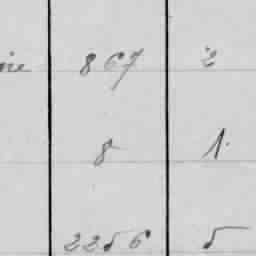 867 2
8 1.
2256 5